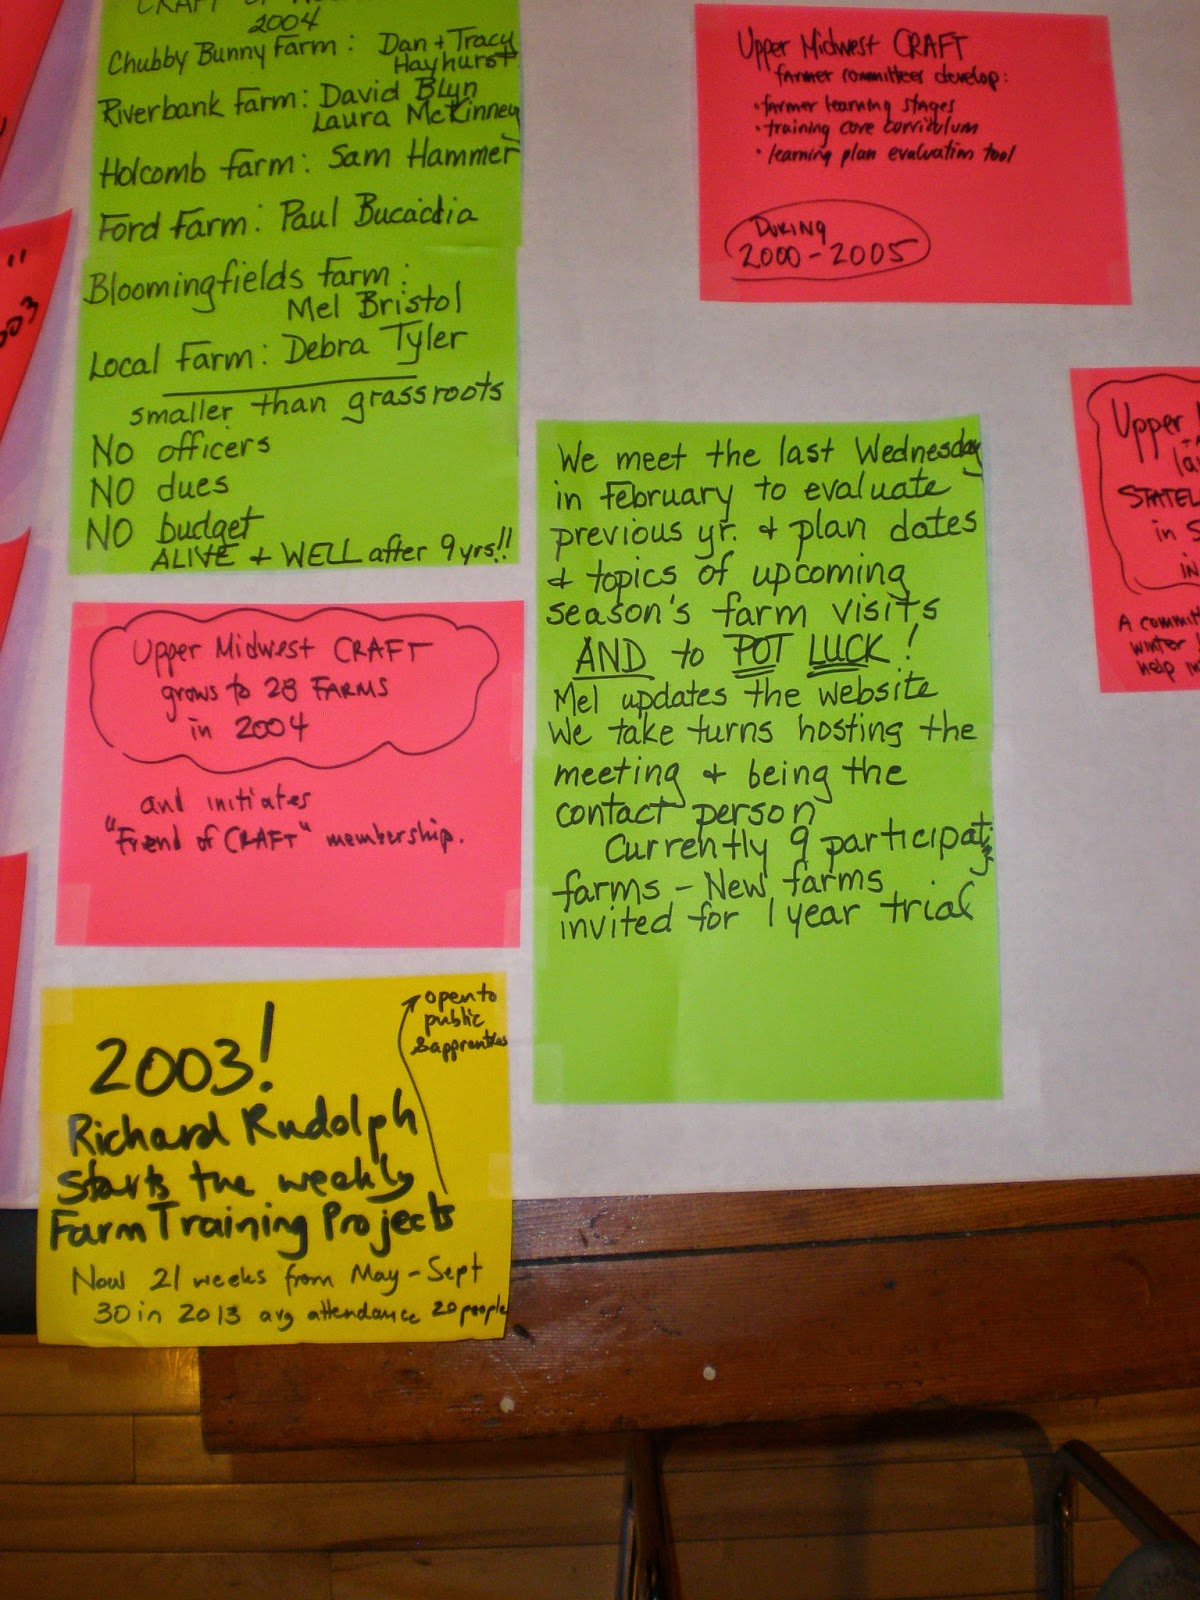 CRAFT OF
2004
Chubby Bunny Farm: Dan + Tracy
Hayhurst
Riverbank Farm: David Blyn
Laura McKinney
Holcomb Farm: Sam Hammer
Ford Farm: Paul Bucaccia
Bloomingfields Farm:
Mel Bristol
Local Farm: Debra Tyler
smaller than grassroots
NO officers
NO dues
NO budget
ALIVE + WELL after 9 yrs!!
Upper Midwest CRAFT
farmer committees develop:
• farmer learning stages
• training core curriculum
• learning plan evaluation tool
DURING
2000-2005
"
003
Upper
la
STATEL
in S
IN
A committ
winter
help in
We meet the last Wednesday
in February to evaluate
previous yr. + plan dates
+ topics of upcoming
season's farm visits
AND to POT LUCK!
Mel updates the website
We take turns hosting the
meeting + being the
contact person
Currently 9 participating
farms - New farms
invited for 1 year trial
Upper Midwest CRAFT
grows to 28 FARMS
in 2004
and initiates
"Friend of CRAFT" membership.
open to
public
& apprentices
2003!
Richard Rudolph
starts the weekly
Farm Training Projects
Now 21 weeks from May-Sept
30 in 2013 avg attendance 20 people